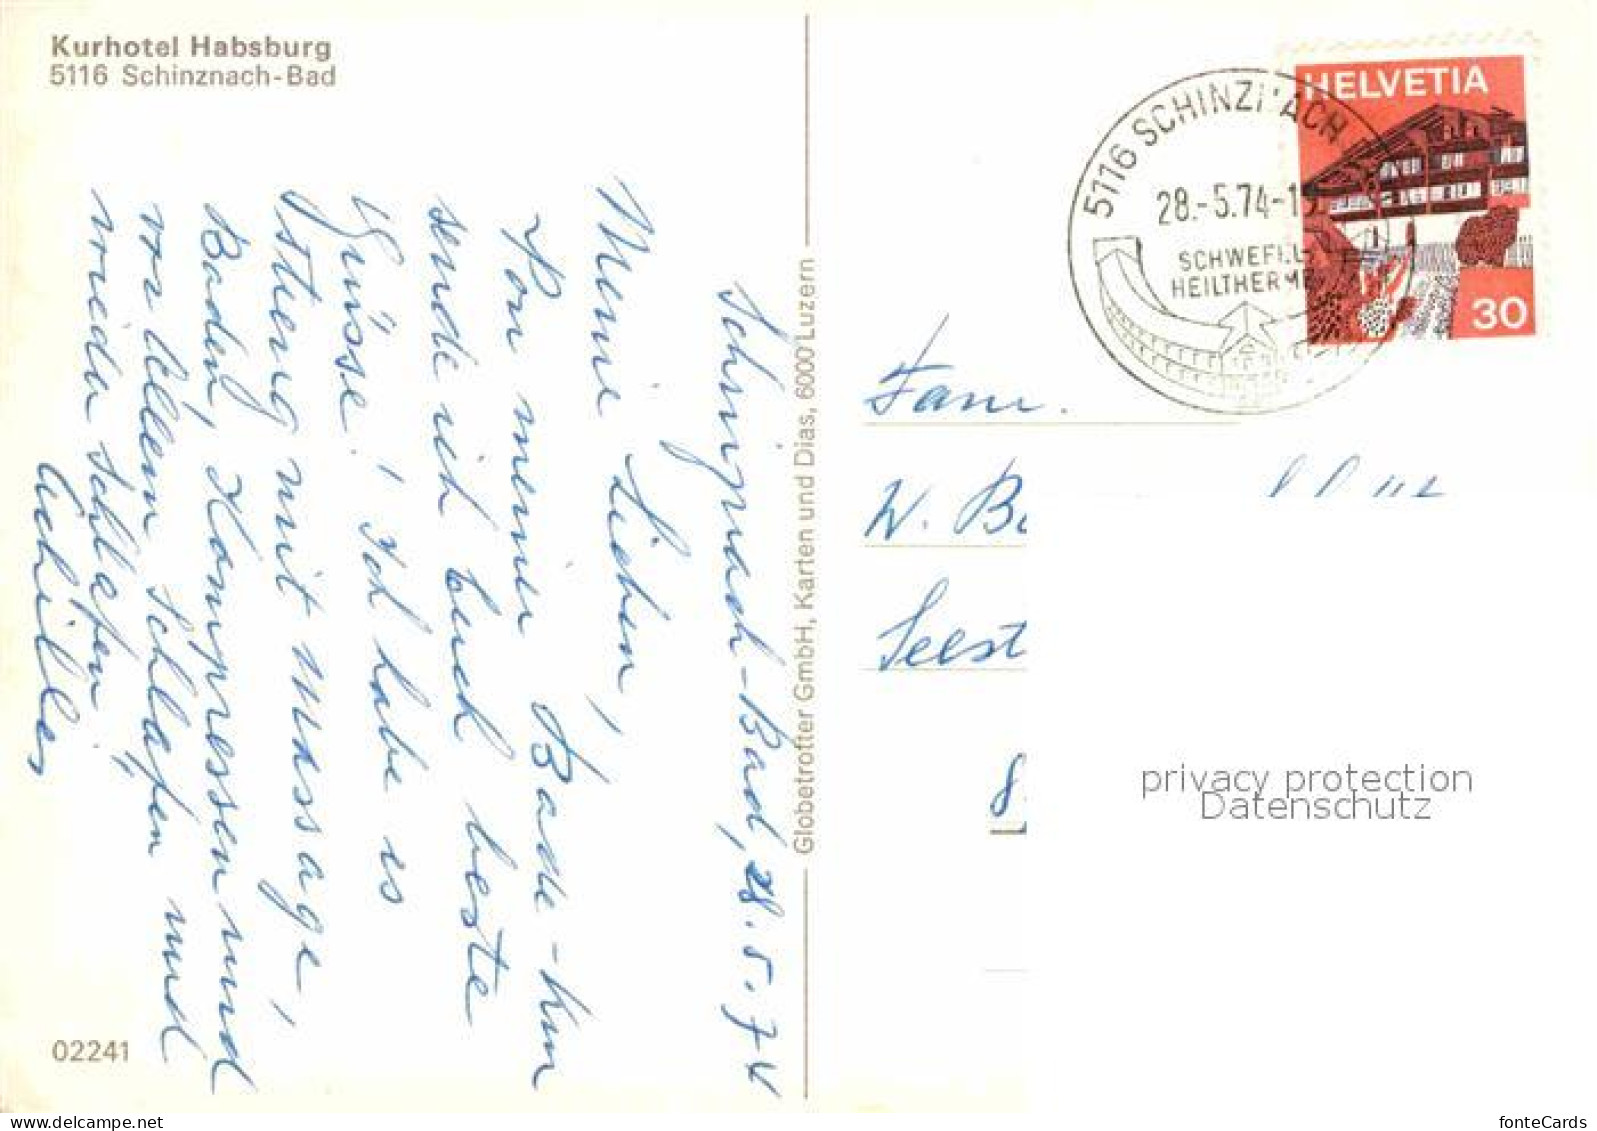 Kurhotel Habsburg
5116 Schinznach-Bad
Schinznach-Bad, 28. 5. 74
Meine Lieben,
Von meiner Bade-Kur
sende ich Euch beste
Grüsse! Ich habe es
streng mit Massage,
Baden, Kompressen und
vor Allem "schlafen und
wieder schlafen"
Achilles
02241
Globetrotter GmbH, Karten und Dias, 6000 Luzern
5116 SCHINZNACH
28.-5.74-1
SCHWEFEL-
HEILTHERME
HELVETIA
30
Fam.
W. B
Seest
8
privacy protection
Datenschutz
fonteCards